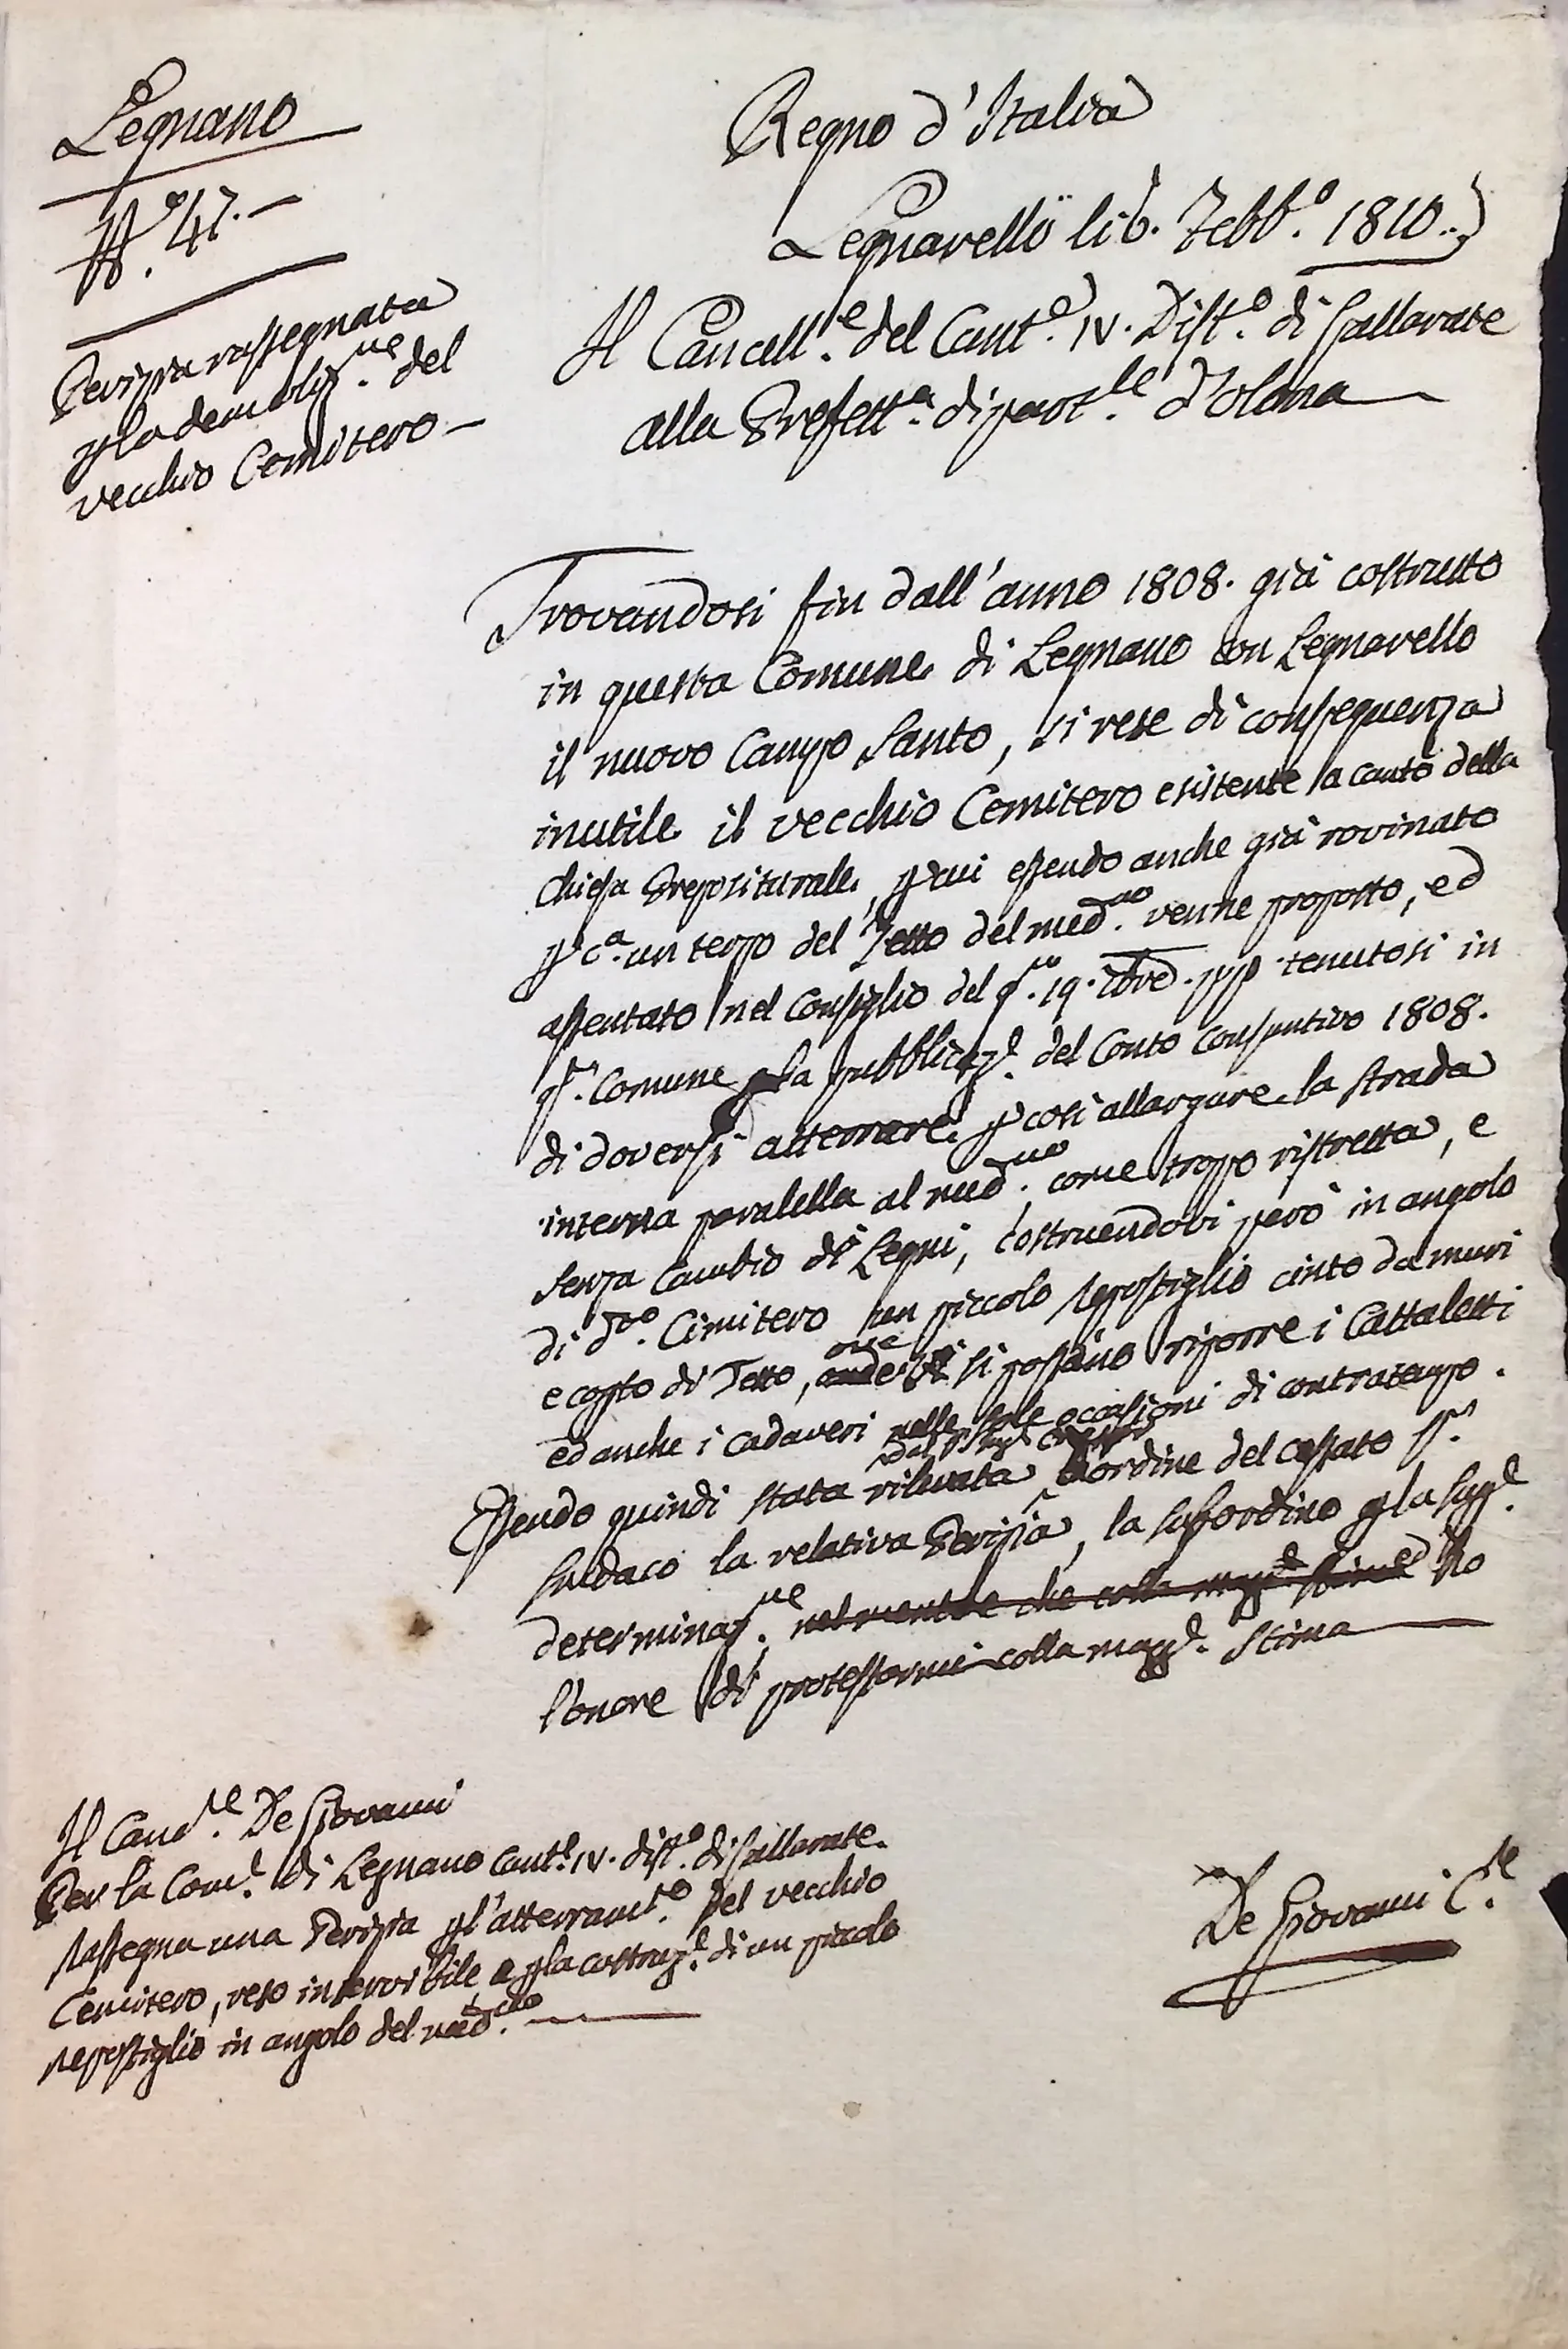 Legnano
N.º 47.
Perizia rassegnata
p la demoliz.ne del
vecchio Cemitero
Regno d'Italia
Legnarello li 6. Febb.º 1810.
Il Cancell.e del Cant.º IV. Dist.º di Gallarate
alla Prefett.a dipart.le d'Olona
Trovandosi fin dall'anno 1808. già costrutto
in questa Comune di Legnano con Legnarello
il nuovo Campo Santo, si rese di conseguenza
inutile il vecchio Cemitero esistente a canto della
Chiesa Prepositurale, p cui essendo anche già rovinato
p c.a un terzo del Tetto del med.mo venne proposto, ed
assentato nel Consiglio del g.no 19. 10bre. pp tenutosi in
q.ta Comune p la pubblicaz.e del Conto Consuntivo 1808.
di doversi atterrare p così allargare la strada
interna paralella al med.mo, come troppo ristretta, e
senza Cambio di Legni, costruendovi però in angolo
di d.to Cimitero un piccolo repostiglio cinto da muri
e copto di Tetto, ove si possano riporre i Cattaletti
ed anche i Cadaveri nelle sole occasioni di contratempo.
Essendo quindi stata rilevata d'ordine del cessato S.r
Sindaco la relativa Perizia, la subordino p la sup.e
determinaz.ne nel mentre che colla magg.e stima Ho
l'onore di protestarmi colla magg.e stima
Il Canc.re De Giovanni
Per la Com.e di Legnano Cant.e IV. dist.º di Gallarate
Rassegna una Perizia p l'atterram.to del vecchio
Cemitero, reso inservibile, e p la costruz.e di un piccolo
repostiglio in angolo del med.mo
De Giovanni C.re